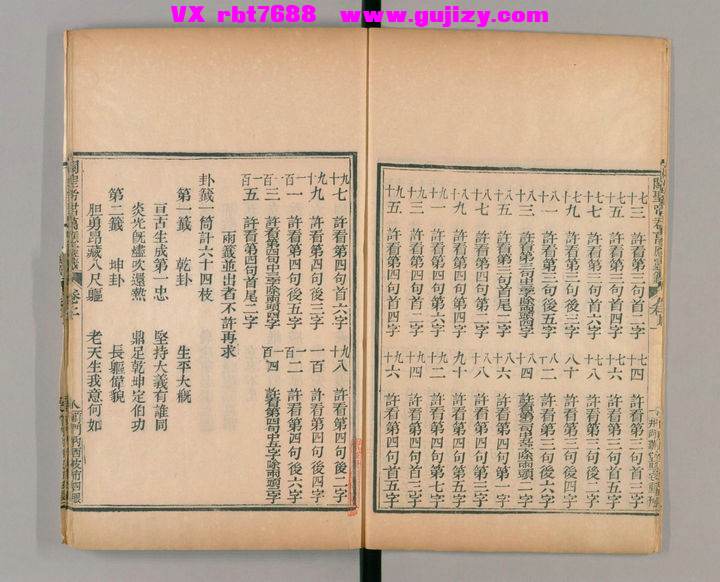 VX rbt7688 www.gujizy.com
七十三 許看第三句首二字 七十四 許看第三句首三字
七十五 許看第三句首四字 七十六 許看第三句首五字
七十七 許看第三句首六字 七十八 許看第三句後二字
七十九 許看第三句後三字 八十 許看第三句後四字
八十一 許看第三句後五字 八十二 許看第三句後六字
八十三 許看第三句中三字除兩頭四字 八十四 許看第三句中五字除兩頭二字
八十五 許看第三句首尾二字 八十六 許看第四句第一字
八十七 許看第四句第二字 八十八 許看第四句第三字
八十九 許看第四句第四字 九十 許看第四句第五字
九十一 許看第四句第六字 九十二 許看第四句第七字
九十三 許看第四句首二字 九十四 許看第四句首三字
九十五 許看第四句首四字 九十六 許看第四句首五字
九十七 許看第四句首六字 九十八 許看第四句後二字
九十九 許看第四句後三字 一百 許看第四句後四字
百一 許看第四句後五字 百二 許看第四句後六字
百三 許看第四句中三字除兩頭四字 百四 許看第四句中五字除兩頭二字
百五 許看第四句首尾二字
兩籤並出者不許再求
卦籤一筒計六十四枝
第一籤 乾卦 生平大概
亘古生成第一忠 堅持大義有誰同
炎光既燼吹還爇 鼎足乾坤定伯功
第二籤 坤卦 長軀偉貌
胆勇昂藏八尺軀 老天生我意何如